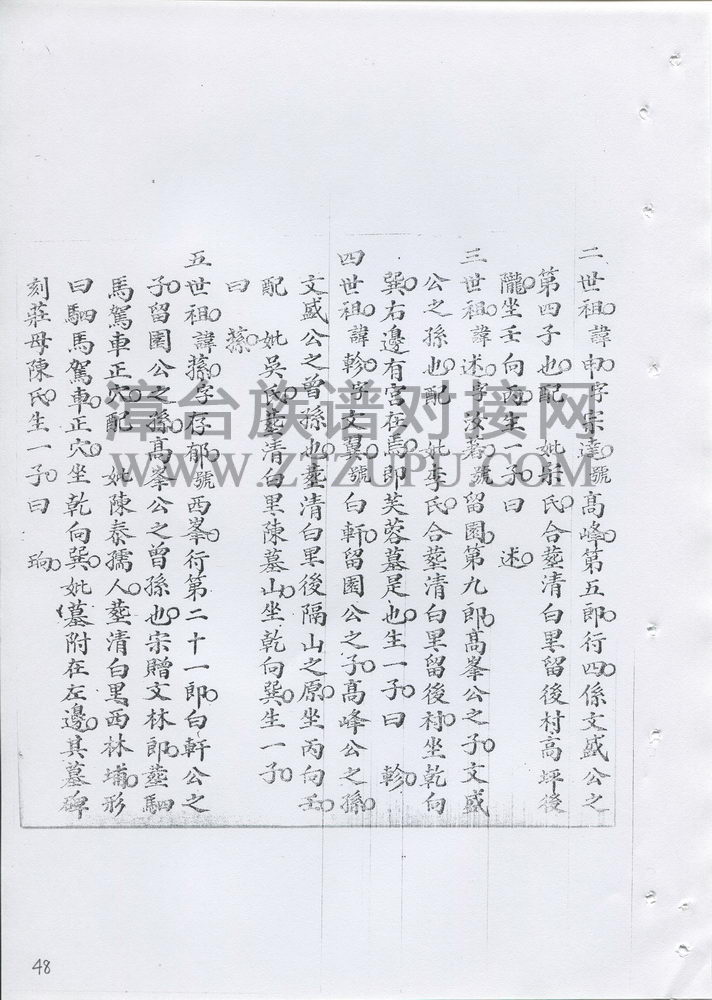 二世祖諱申字宗達號高峰第五郎行四係文盛公之
第四子也配 妣宗氏合塟清白里留後村高坪後
隴坐壬向丙生一子曰 述
三世祖諱述字汝著號留園第九郎高峯公之子文盛
公之孫也配 妣李氏合塟清白里留後村坐乾向
巽右邊有宮在馬即芙蓉墓是也生一子曰 軫
四世祖諱軫字文翼號白軒留園公之子高峰公之孫
文盛公之曾孫也塟清白里後隔山之原坐丙向壬
配 妣吳氏塟清白里陳墓山坐乾向巽生一子
曰 蓀
五世祖諱蓀字存郁號西峯行第二十一郎白軒公之
子留園公之孫高峯公之曾孫也宗贈文林郎塟駟
馬駕車正穴配 妣陳泰孺人塟清白里西林埔形
曰駟馬駕車正穴坐乾向巽妣墓附在左邊其墓碑
刻莊母陳氏生一子曰 珣
漳台族谱对接网
WWW.ZTZUPU.COM
48